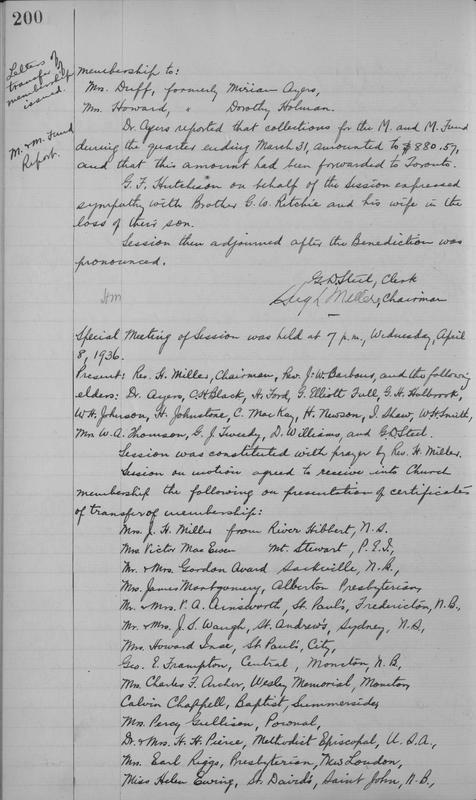 200
Letters of
transfer of
membership
issued.
membership to:
Mrs. Duff, formerly Miriam Ayers,
Mrs. Howard, " Dorothy Holman.
M. & M. Fund
Report.
Dr. Ayers reported that collections for the M. and M. Fund
during the quarter ending March 31, amounted to $880.57,
and that this amount had been forwarded to Toronto.
G. F. Hutcheson on behalf of the Session expressed
sympathy with Brother G. W. Ritchie and his wife in the
loss of their son.
Session then adjourned after the Benediction was
pronounced.
G. D. Steel, Clerk
HM
Hugh Miller, Chairman
Special Meeting of Session was held at 7 p.m., Wednesday, April
8, 1936.
Present: Rev. H. Miller, Chairman, Rev. J. W. Barbour, and the following
elders: Dr. Ayers, C. H. Black, H. Ford, G. Elliott Full, G. H. Holbrook,
W. H. Johnson, H. Johnstone, C. MacKay, H. Newson, I. Shaw, W. H. Smith,
Mrs W. A. Thomson, G. J. Tweedy, D. Williams, and G. D. Steel.
Session was constituted with prayer by Rev. H. Miller.
Session on motion agreed to receive into Church
membership the following on presentation of certificates
of transfer of membership:
Mrs. J. H. Miller from River Hibbert, N.S.
Mrs Victor MacEwen Mt. Stewart, P.E.I.,
Mr. & Mrs. Gordon Avard Sackville, N.B.,
Mrs. James Montgomery, Alberton Presbyterian,
Mr. & Mrs. P. A. Ainsworth, St. Paul's, Fredericton, N.B.,
Mr. & Mrs. J. S. Waugh, St. Andrew's, Sydney, N.S.,
Mrs. Howard, St. Paul's, City,
Geo. E. Frampton, Central, Moncton, N.B.,
Mrs. Charles F. Archer, Wesley Memorial, Moncton
Calvin Chappell, Baptist, Summerside,
Mrs. Percy Gullison, Pownal,
Dr. & Mrs. H. H. Pierce, Methodist Episcopal, U.S.A.,
Mrs. Earl Riggs, Presbyterian, New London,
Miss Helen Ewing, St. David's, Saint John, N.B.,